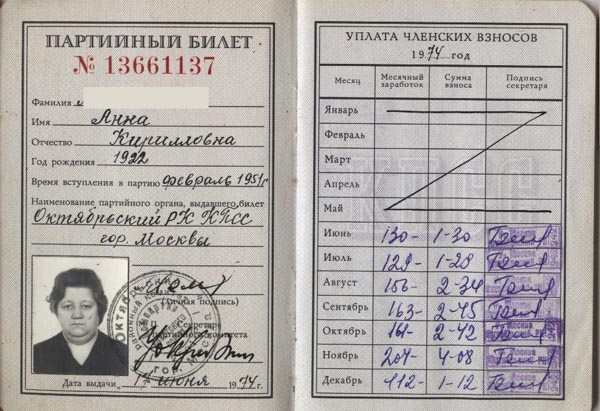 ПАРТИЙНЫЙ БИЛЕТ
№ 13661137
Фамилия
Имя Анна
Отчество Кирилловна
Год рождения 1922
Время вступления в партию февраль 1951г
Наименование партийного органа, выдавшего билет
Октябрьский РК КПСС
гор. Москвы
(Личная подпись)
Секретарь
партийного комитета
Дата выдачи 17 июня 1974 г.
УПЛАТА ЧЛЕНСКИХ ВЗНОСОВ
1974 год
Месяц Месячный заработок Сумма взноса Подпись секретаря
Январь
Февраль
Март
Апрель
Май
Июнь 130- 1-30
Июль 128- 1-28
Август 156- 2-34
Сентябрь 163- 2-45
Октябрь 161- 2-42
Ноябрь 204- 4-08
Декабрь 112- 1-12
КПСС